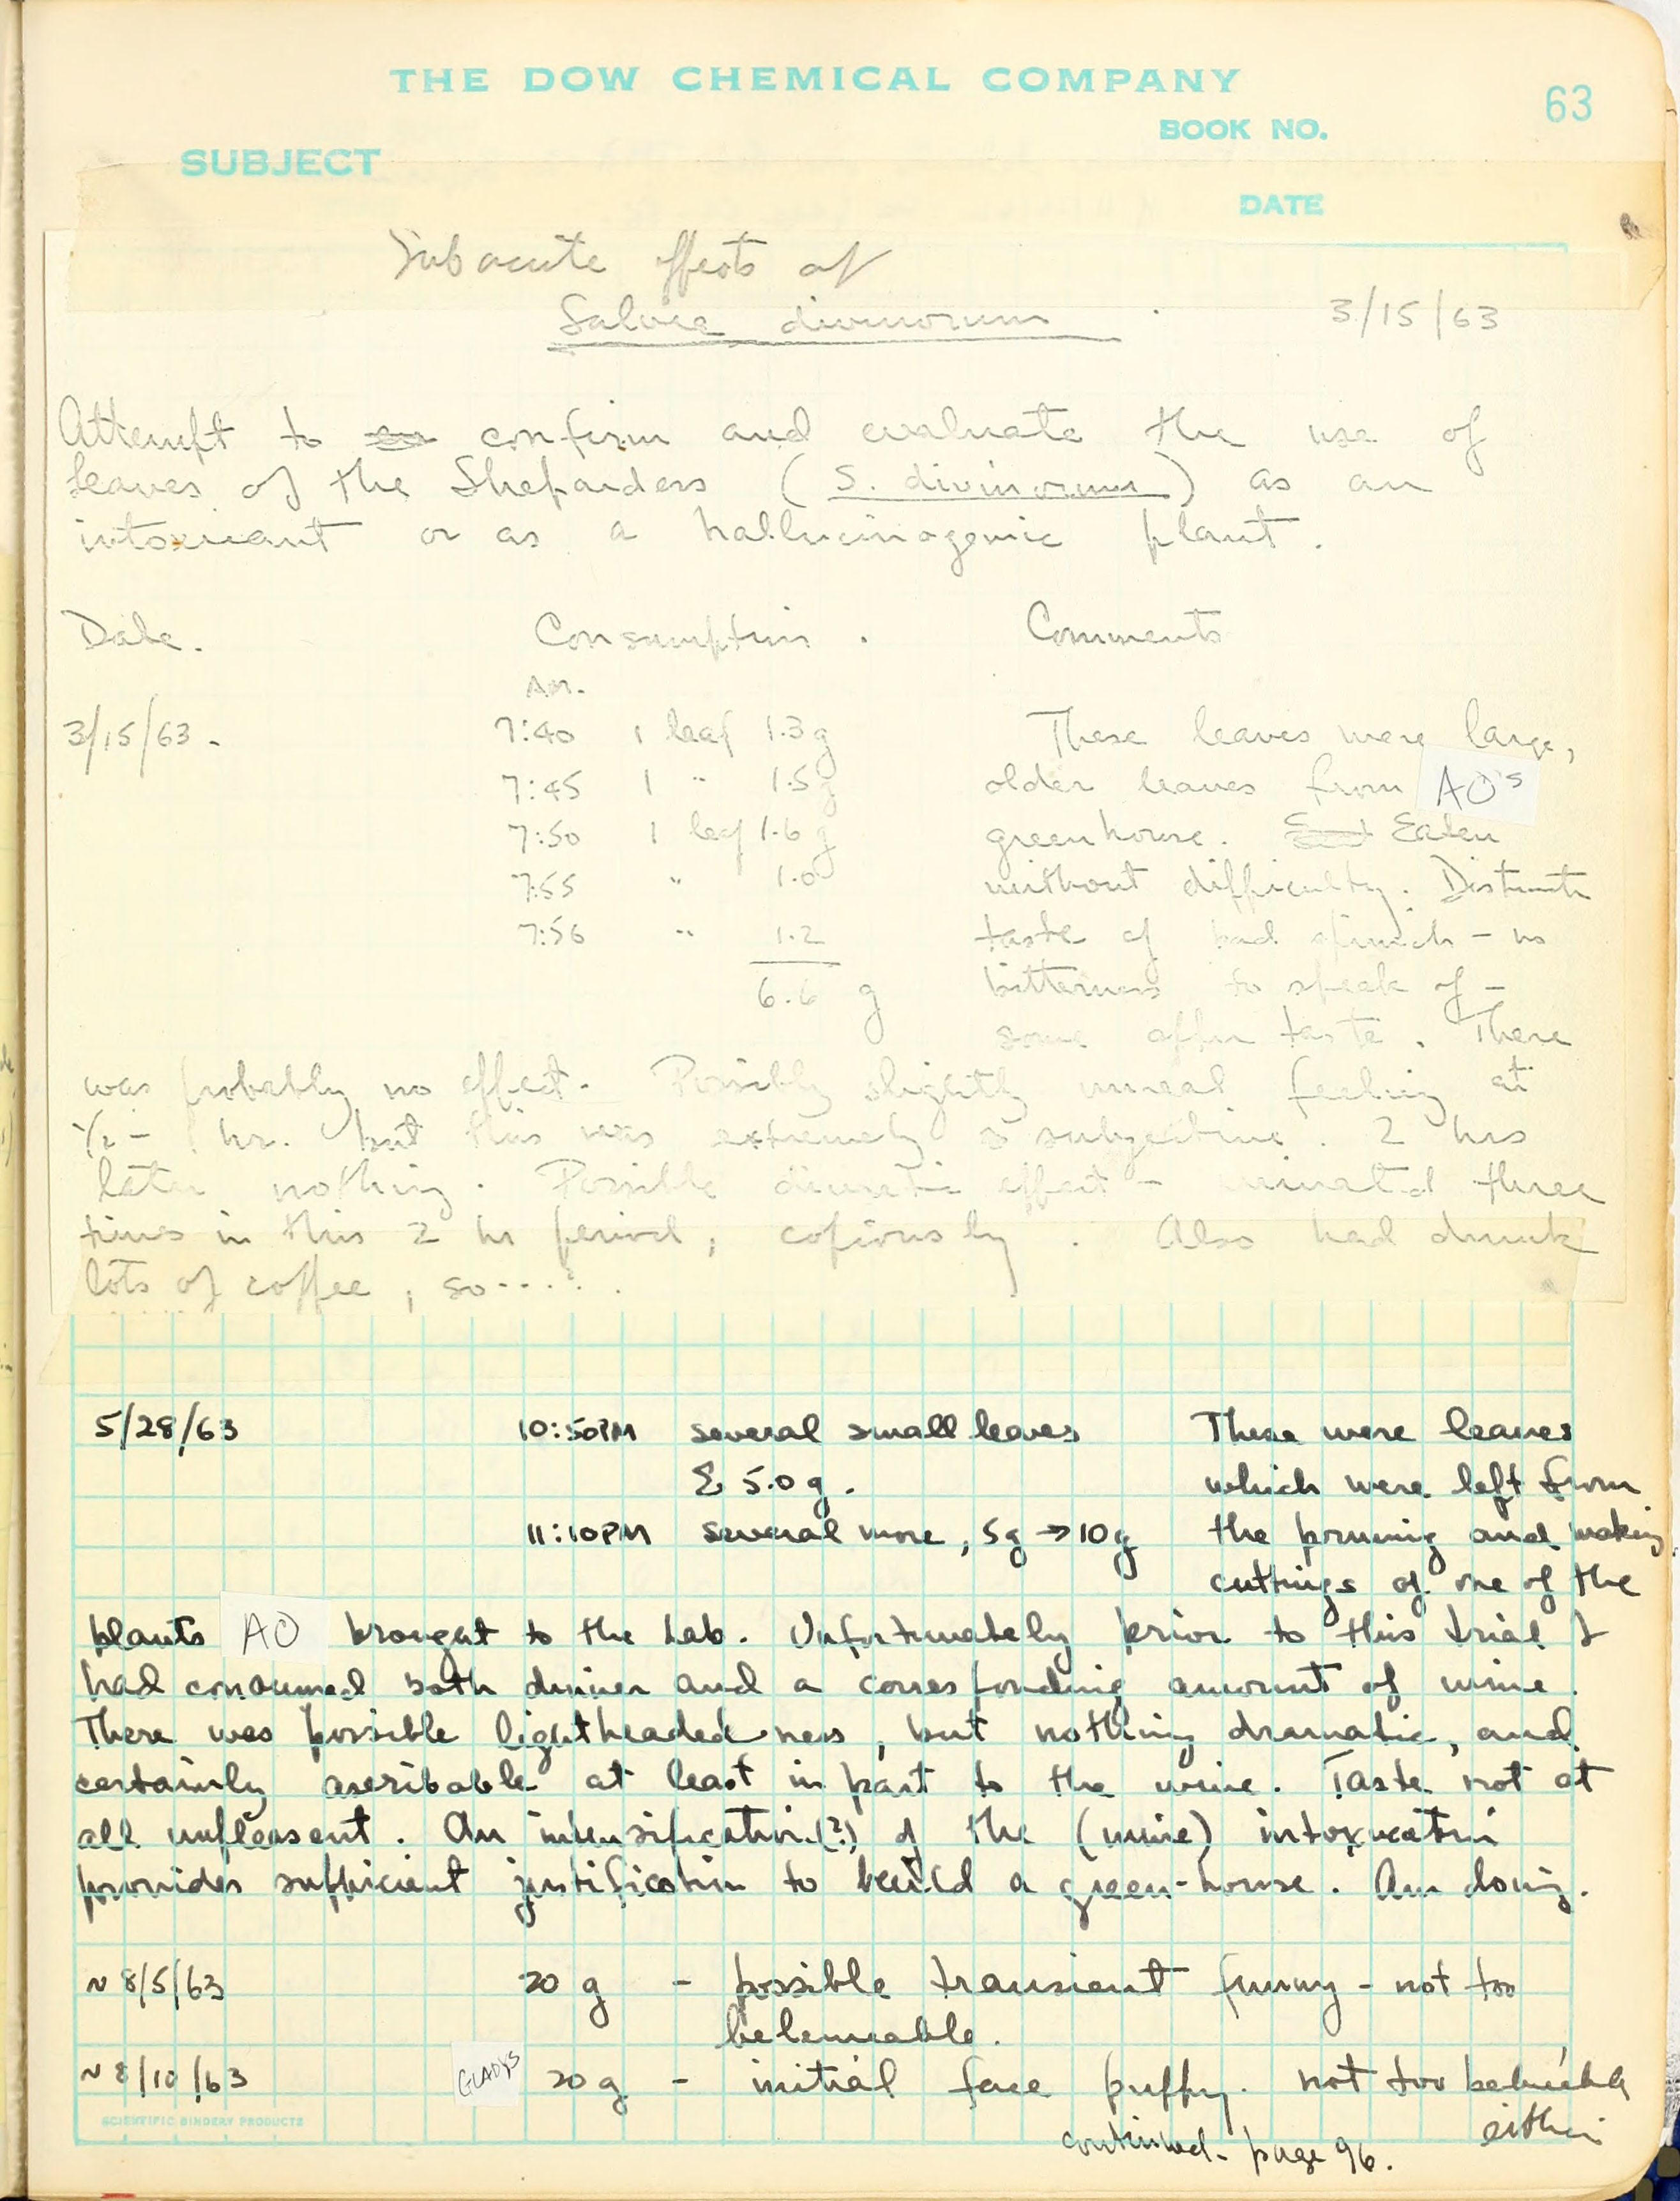 THE DOW CHEMICAL COMPANY
63
BOOK NO.
SUBJECT
DATE
Subacute effects of
Salvia divinorum
3/15/63
Attempt to confirm and evaluate the use of
leaves of the Shepardess (S. divinorum) as an
intoxicant or as a hallucinogenic plant.
Date. Consumption. Comments
AM.
3/15/63. 7:40 1 leaf 1.3g These leaves were large,
7:45 1 " 1.5g older leaves from AO's
7:50 1 leaf 1.6g greenhouse. Eaten
7:55 " 1.0 without difficulty. Distinct
7:56 " 1.2 taste of bad spinach - no
6.6 g bitterness to speak of -
some after taste. There
was probably no effect. Possibly slightly unreal feeling at
1/2 - 1 hr. but this was extremely subjective. 2 hrs
later nothing. Possible diuretic effect - urinated three
times in this 2 hr period, copiously. Also had drunk
lots of coffee, so.....
5/28/63 10:50PM several small leaves These were leaves
Σ 5.0g. which were left from
11:10PM several more, 5g → 10g the pruning and making
cuttings of one of the
plants AO brought to the Lab. Unfortunately prior to this trial I
had consumed both dinner and a corresponding amount of wine.
There was possible lightheadedness, but nothing dramatic, and
certainly ascribable at least in part to the wine. Taste not at
all unpleasent. An intensification(?) of the (wine) intoxication
provides sufficient justification to build a green-house. Am doing.
~ 8/5/63 20 g - possible transient funny - not too
believeable.
~ 8/10/63 GLADYS 20g - initial face puffy. not too
either
continued - page 96.
SCIENTIFIC BINDERY PRODUCTS